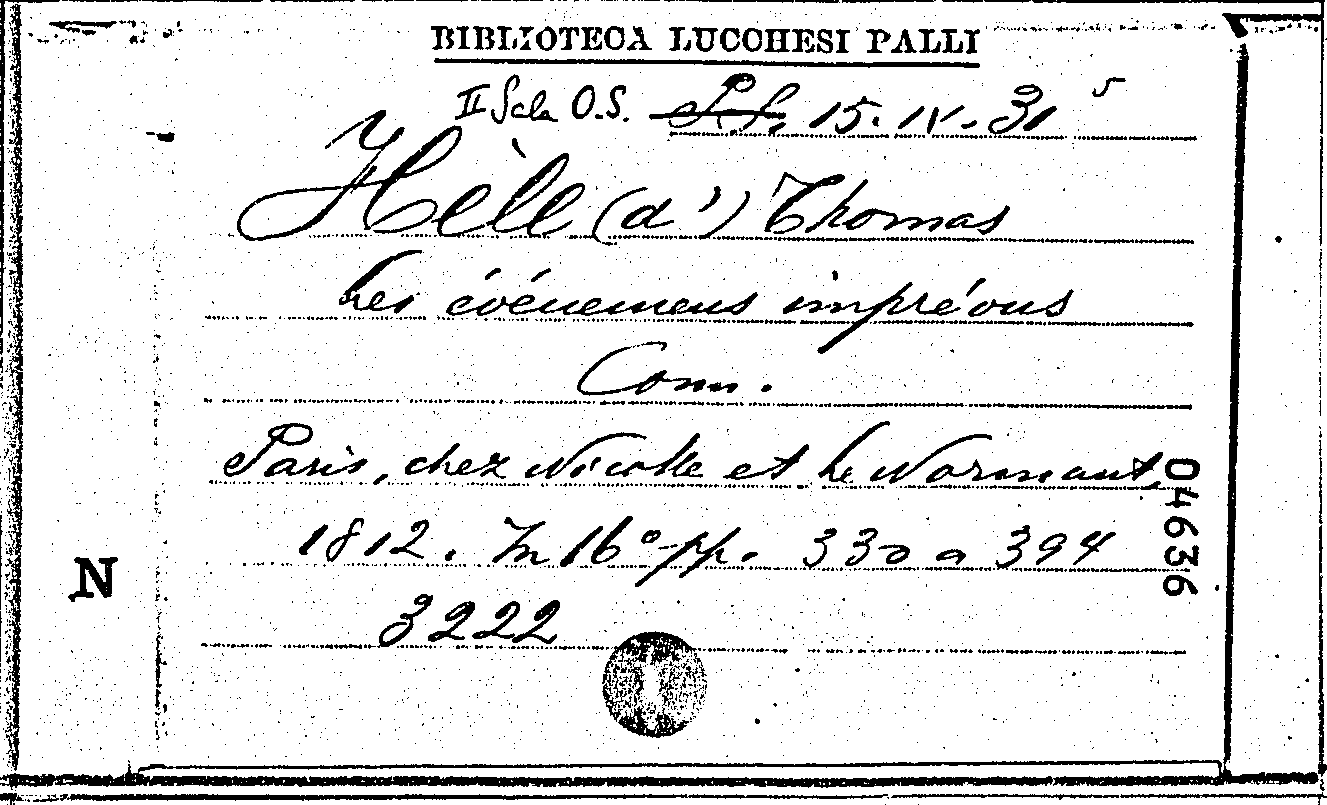 BIBLIOTECA LUCCHESI PALLI
II Sala O.S. P.f. 15. IV. 31 5
Hèle (d') Thomas
Les événemens imprévus
Com.
Paris, chez Nicolle et Le Normant,
1812. In 16° pp. 330 a 394
3222
N
04636